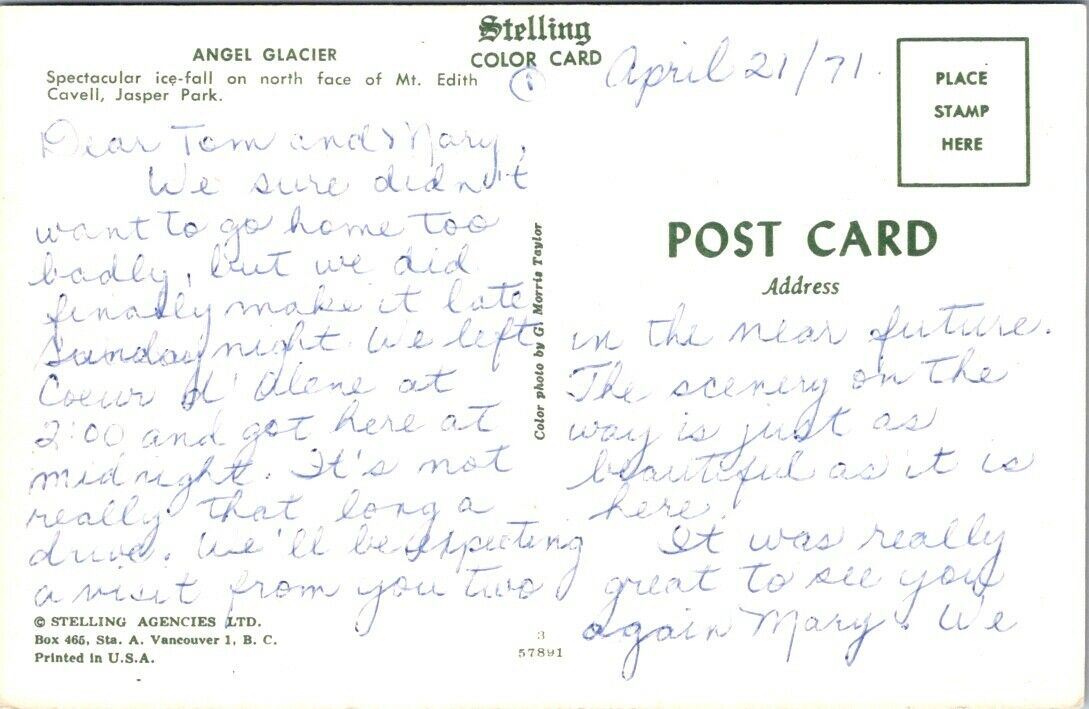 Stelling
COLOR CARD
ANGEL GLACIER
Spectacular ice-fall on north face of Mt. Edith
Cavell, Jasper Park.
①
April 21/71.
PLACE
STAMP
HERE
Dear Tom and Mary,
We sure didn't
want to go home too
badly, but we did
finally make it late
Sunday night. We left
Coeur d'Alene at
2:00 and got here at
midnight. It's not
really that long a
drive. We'll be expecting
a visit from you two
© STELLING AGENCIES LTD.
Box 465, Sta. A. Vancouver 1, B. C.
Printed in U.S.A.
Color photo by G. Morris Taylor
3
57891
POST CARD
Address
in the near future.
The scenery on the
way is just as
beautiful as it is
here.
It was really
great to see you
again Mary. We